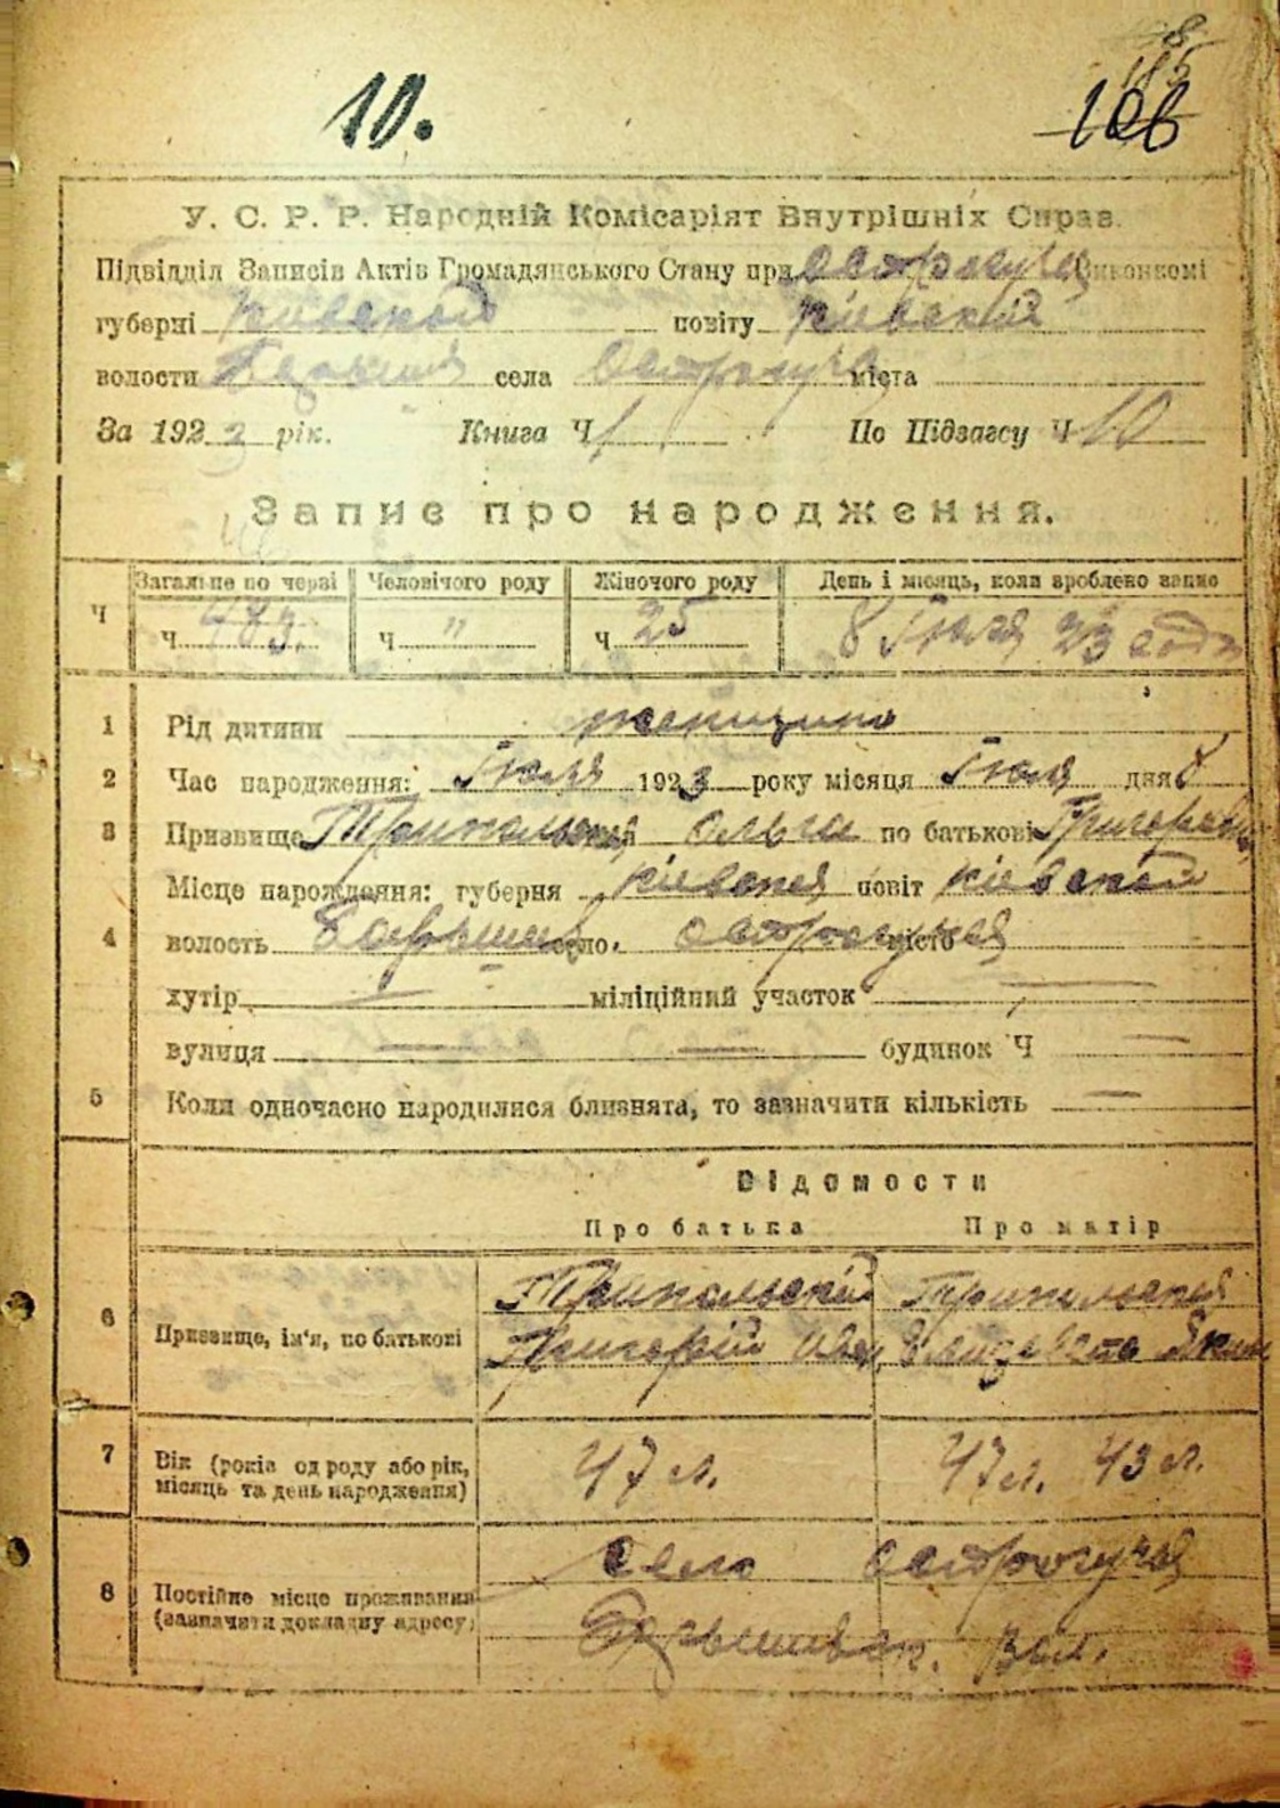 10.
106
У. С. Р. Р. Народній Комісаріят Внутрішніх Справ.
Підвідділ Записів Актів Громадянського Стану при Виконкомі
губерні Киевской повіту Киевской
волости села міста
За 1923 рік. Книга Ч 1 По Підзагсу Ч 10
Запис про народження.
Загальне по черзі Человічого роду Жіночого роду День і місяць, коли зроблено запис
Ч ч. 473. ч. " ч. 25 8 Июля 23 года
1 Рід дитини женщина
2 Час народження: Июля 1923 року місяця Июля дня 8
3 Призвище Трипольская Ольги по батькові Григоревна
Місце народження: губерня Киевская повіт Киевской
4 волость село. місто
хутір — міліційний участок —
вулиця — — будинок Ч —
5 Коли одночасно народилися близнята, то зазначити кількість —
Відомости
Про батька Про матір
6 Призвище, ім'я, по батькові
Трипольский Трипольская
Григорий Иван. Елизавета Яким
7 Вік (років од роду або рік, місяць та день народження) 47 л. 47 л. 43 л.
8 Постійне місце проживання (зазначити докладну адресу)
село
Вол.